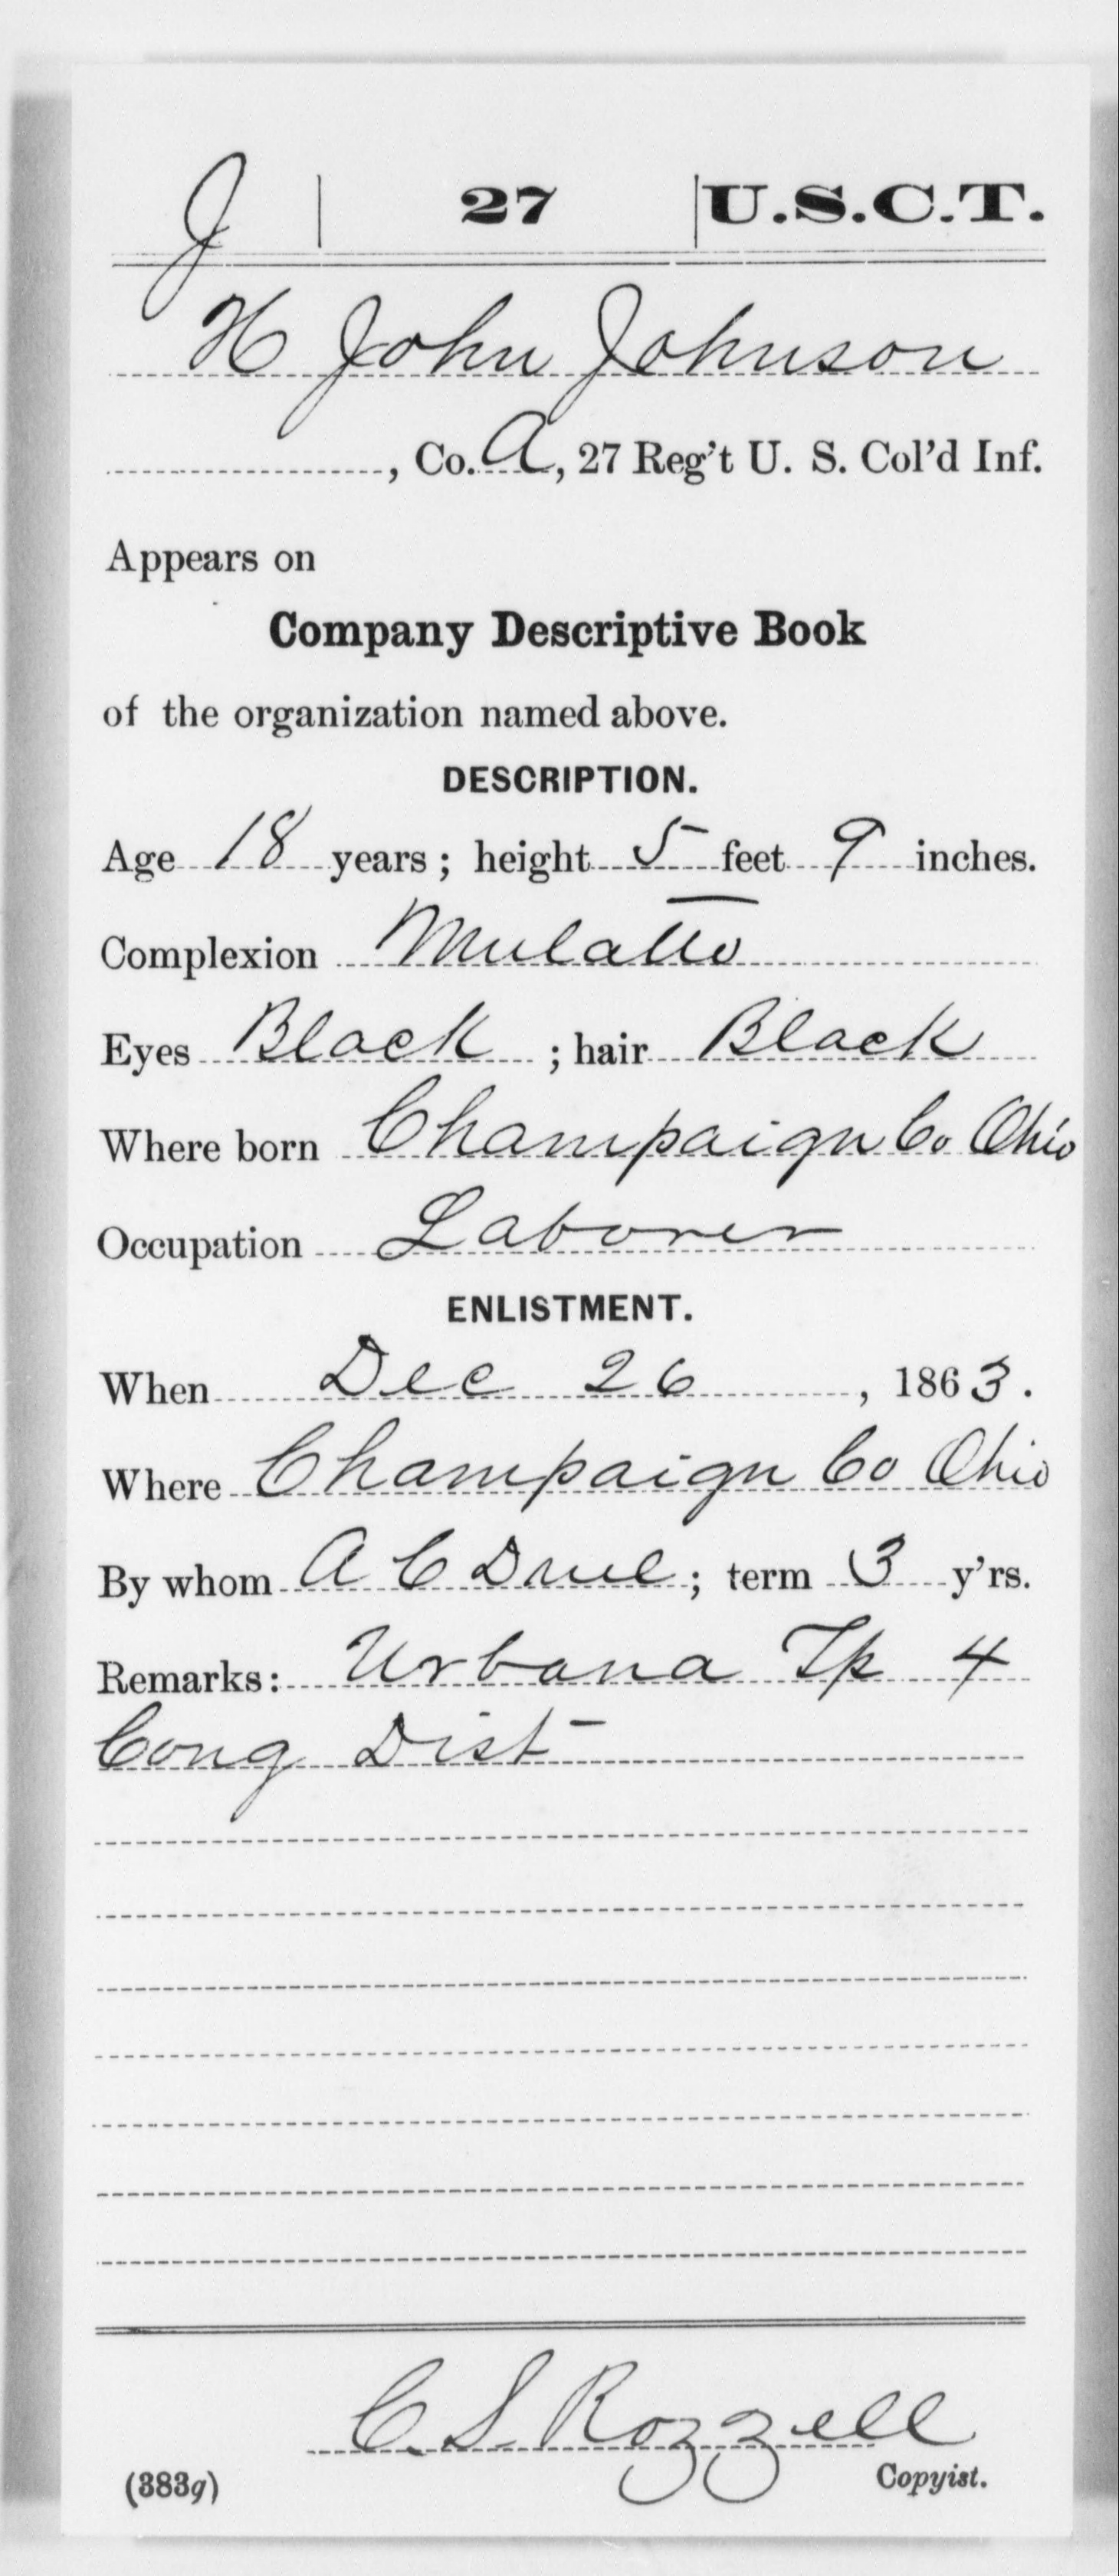 J | 27 | U.S.C.T.
H John Johnson
, Co. A, 27 Reg't U. S. Col'd Inf.
Appears on
Company Descriptive Book
of the organization named above.
DESCRIPTION.
Age 18 years; height 5 feet 9 inches.
Complexion Mulatto
Eyes Black; hair Black
Where born Champaign Co Ohio
Occupation Laborer
ENLISTMENT.
When Dec 26, 1863.
Where Champaign Co Ohio
By whom A C Druel; term 3 y'rs.
Remarks: Urbana Tp 4
Cong Dist
C. S. Rozzell
(383g) Copyist.